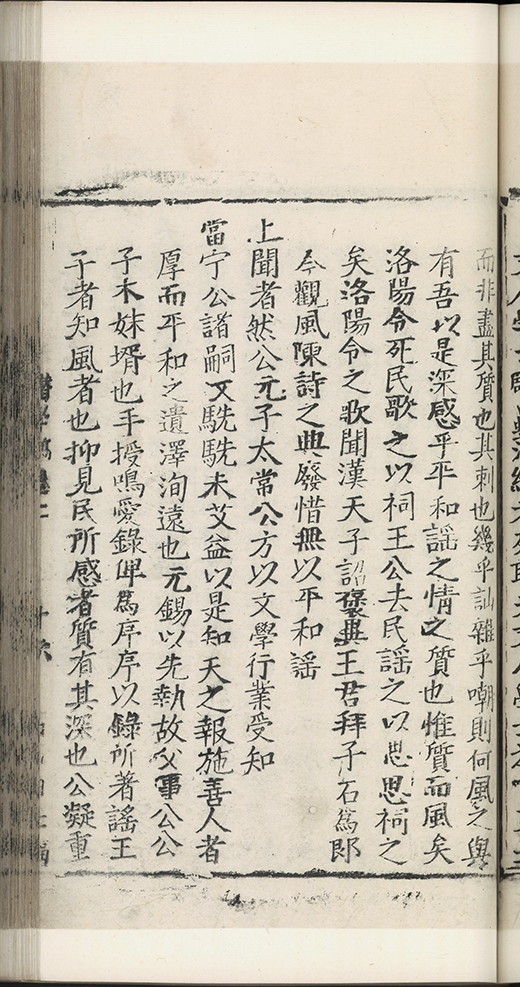 而非盡其質也其刺也幾乎訕雜乎嘲則何風之與
有吾以是深感乎平和謡之情之質也惟質而風矣
洛陽令死民歌之以祠王公去民謡之以思思祠之
矣洛陽令之歌聞漢天子詔襃異王君拜子石爲郎
今觀風陳詩之典廢惜無以平和謡
上聞者然公元子太常公方以文學行業受知
當宁公諸嗣又駪駪未艾益以是知天之報施善人者
厚而平和之遺澤洵遠也元錫以先執故父事公公
子木妹壻也手授鳴愛錄俾爲序序以錄所著謡王
子者知風者也抑見民所感者質有其深也公凝重